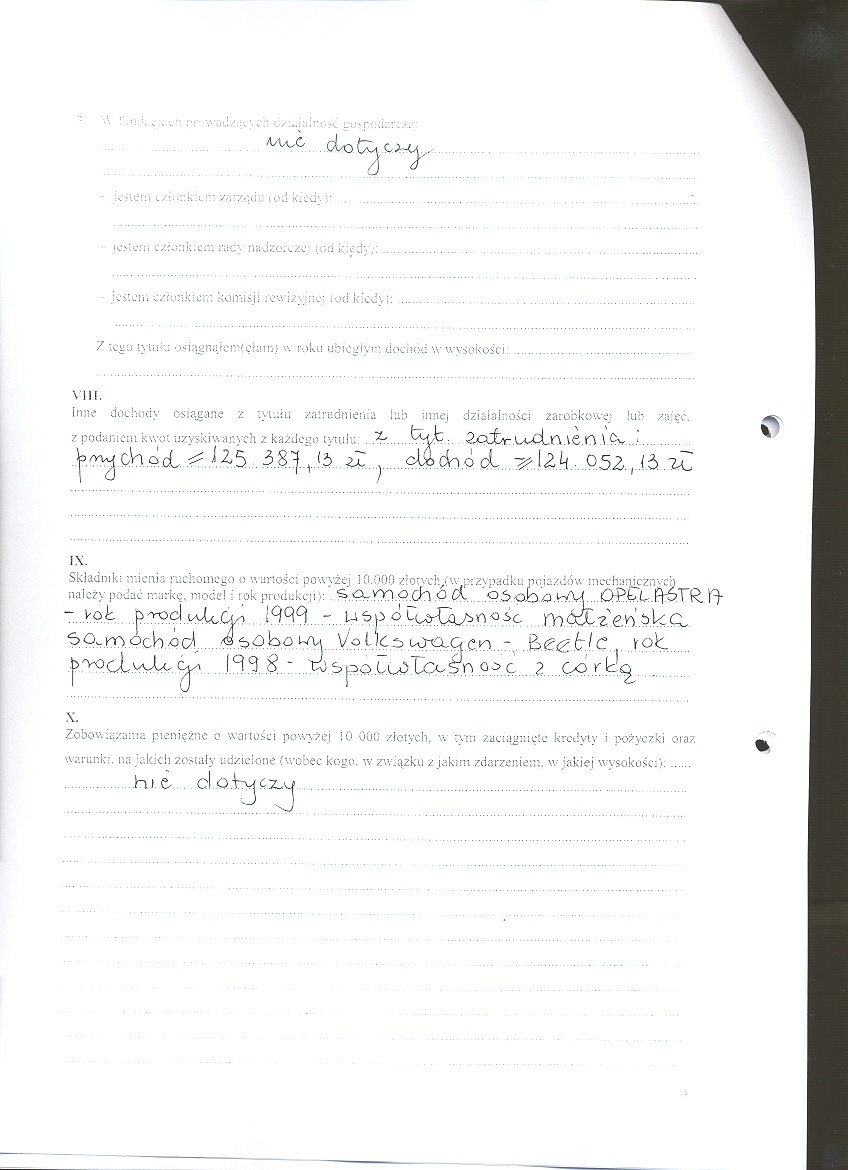 3. W fundacjach prowadzących działalność gospodarczą:
nie dotyczy
– jestem członkiem zarządu (od kiedy):
– jestem członkiem rady nadzorczej (od kiedy):
– jestem członkiem komisji rewizyjnej (od kiedy):
Z tego tytułu osiągnąłem(ęłam) w roku ubiegłym dochód w wysokości:
VIII.
Inne dochody osiągane z tytułu zatrudnienia lub innej działalności zarobkowej lub zajęć,
z podaniem kwot uzyskiwanych z każdego tytułu: z tyt. zatrudnienia:
przychód = 125 387,13 zł, dochód = 124 052,13 zł
IX.
Składniki mienia ruchomego o wartości powyżej 10.000 złotych (w przypadku pojazdów mechanicznych
należy podać markę, model i rok produkcji): samochód osobowy OPEL ASTRA
- rok produkcji 1999 - współwłasność małżeńska
samochód osobowy Volkswagen - Beetle, rok
produkcji 1998 - współwłasność z córką
X.
Zobowiązania pieniężne o wartości powyżej 10 000 złotych, w tym zaciągnięte kredyty i pożyczki oraz
warunki, na jakich zostały udzielone (wobec kogo, w związku z jakim zdarzeniem, w jakiej wysokości): ......
nie dotyczy